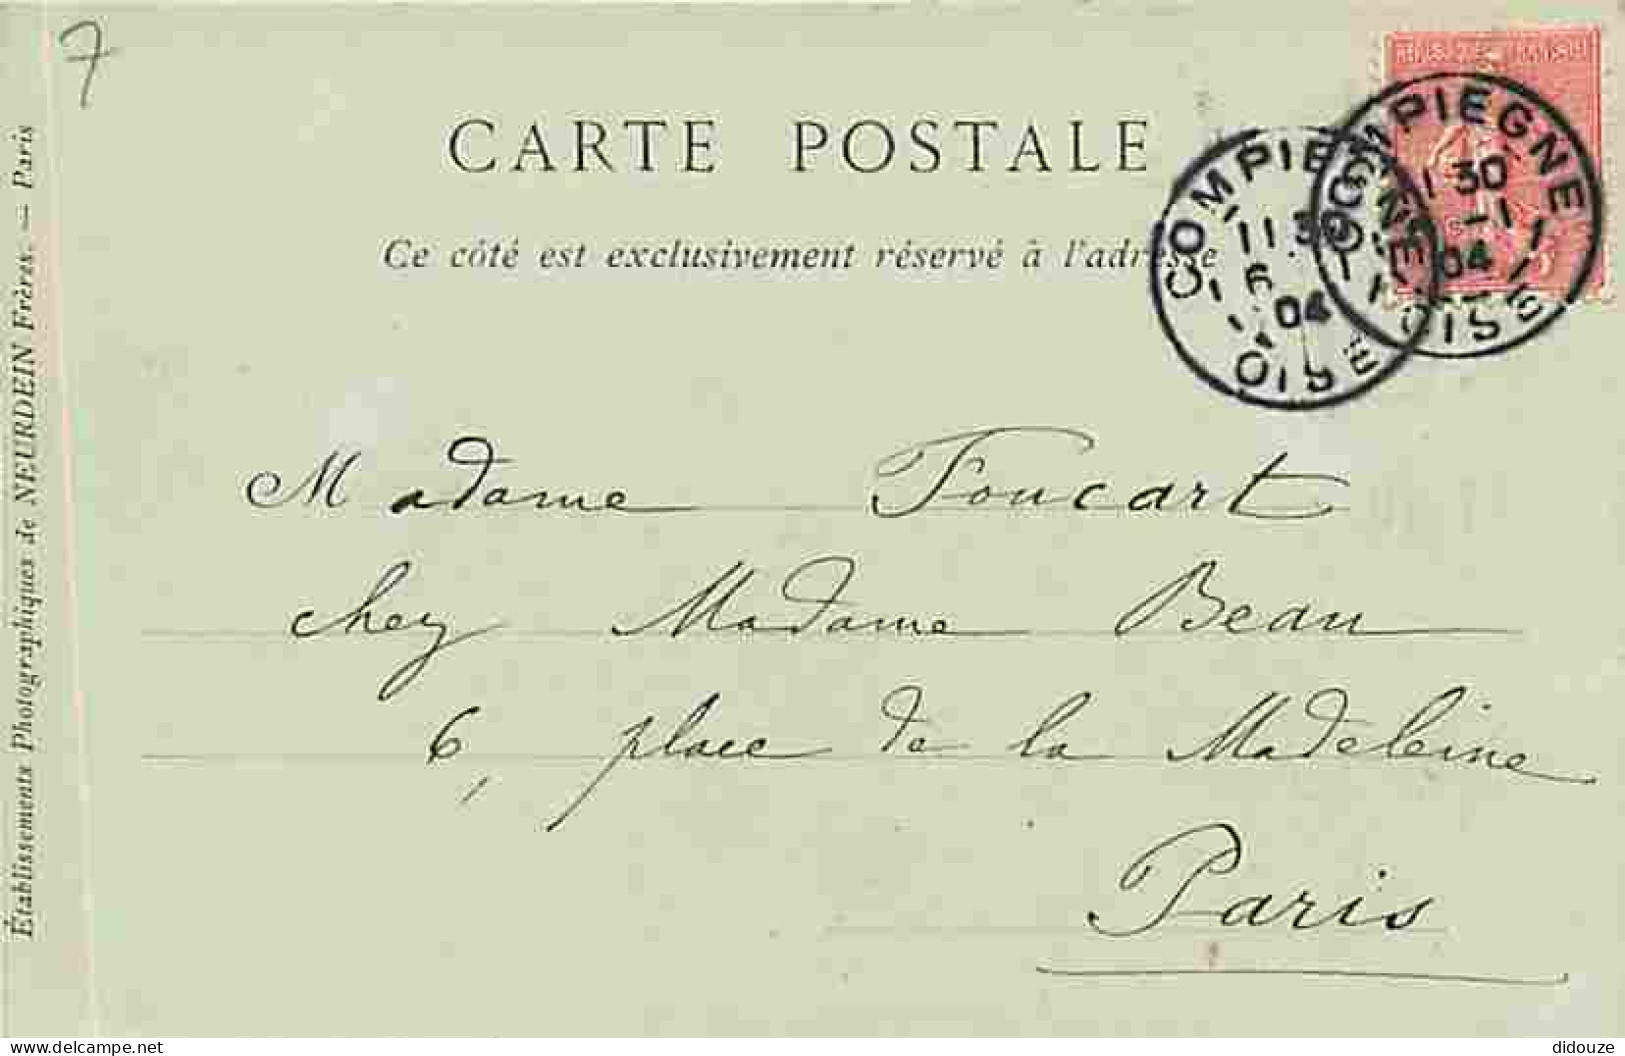 7
CARTE POSTALE
Ce côté est exclusivement réservé à l'adresse
COMPIEGNE
11 30
6
04
OISE
COMPIEGNE
30
-1
04
OISE
Madame Foucart
chez Madame Beau
6, place de la Madeleine
Paris
Établissements Photographiques de NEURDEIN Frères. — Paris
www.delcampe.net
didouze